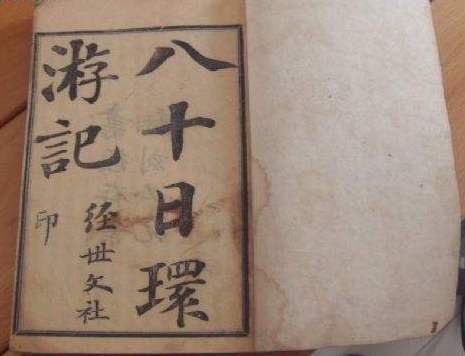 八十日環
游記
經世文社
印